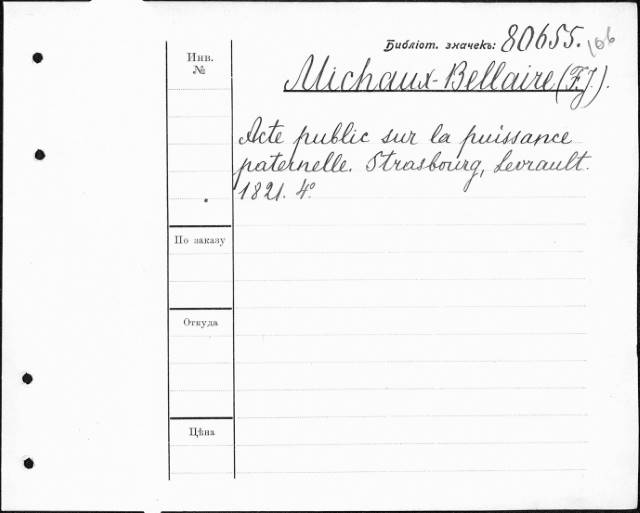 Библіот. значекъ: 80655. 106
Инв.
№
Michaux-Bellaire (F.J.).
Acte public sur la puissance
paternelle. Strasbourg, Levrault.
1821. 4°.
По заказу
Откуда
Цѣна